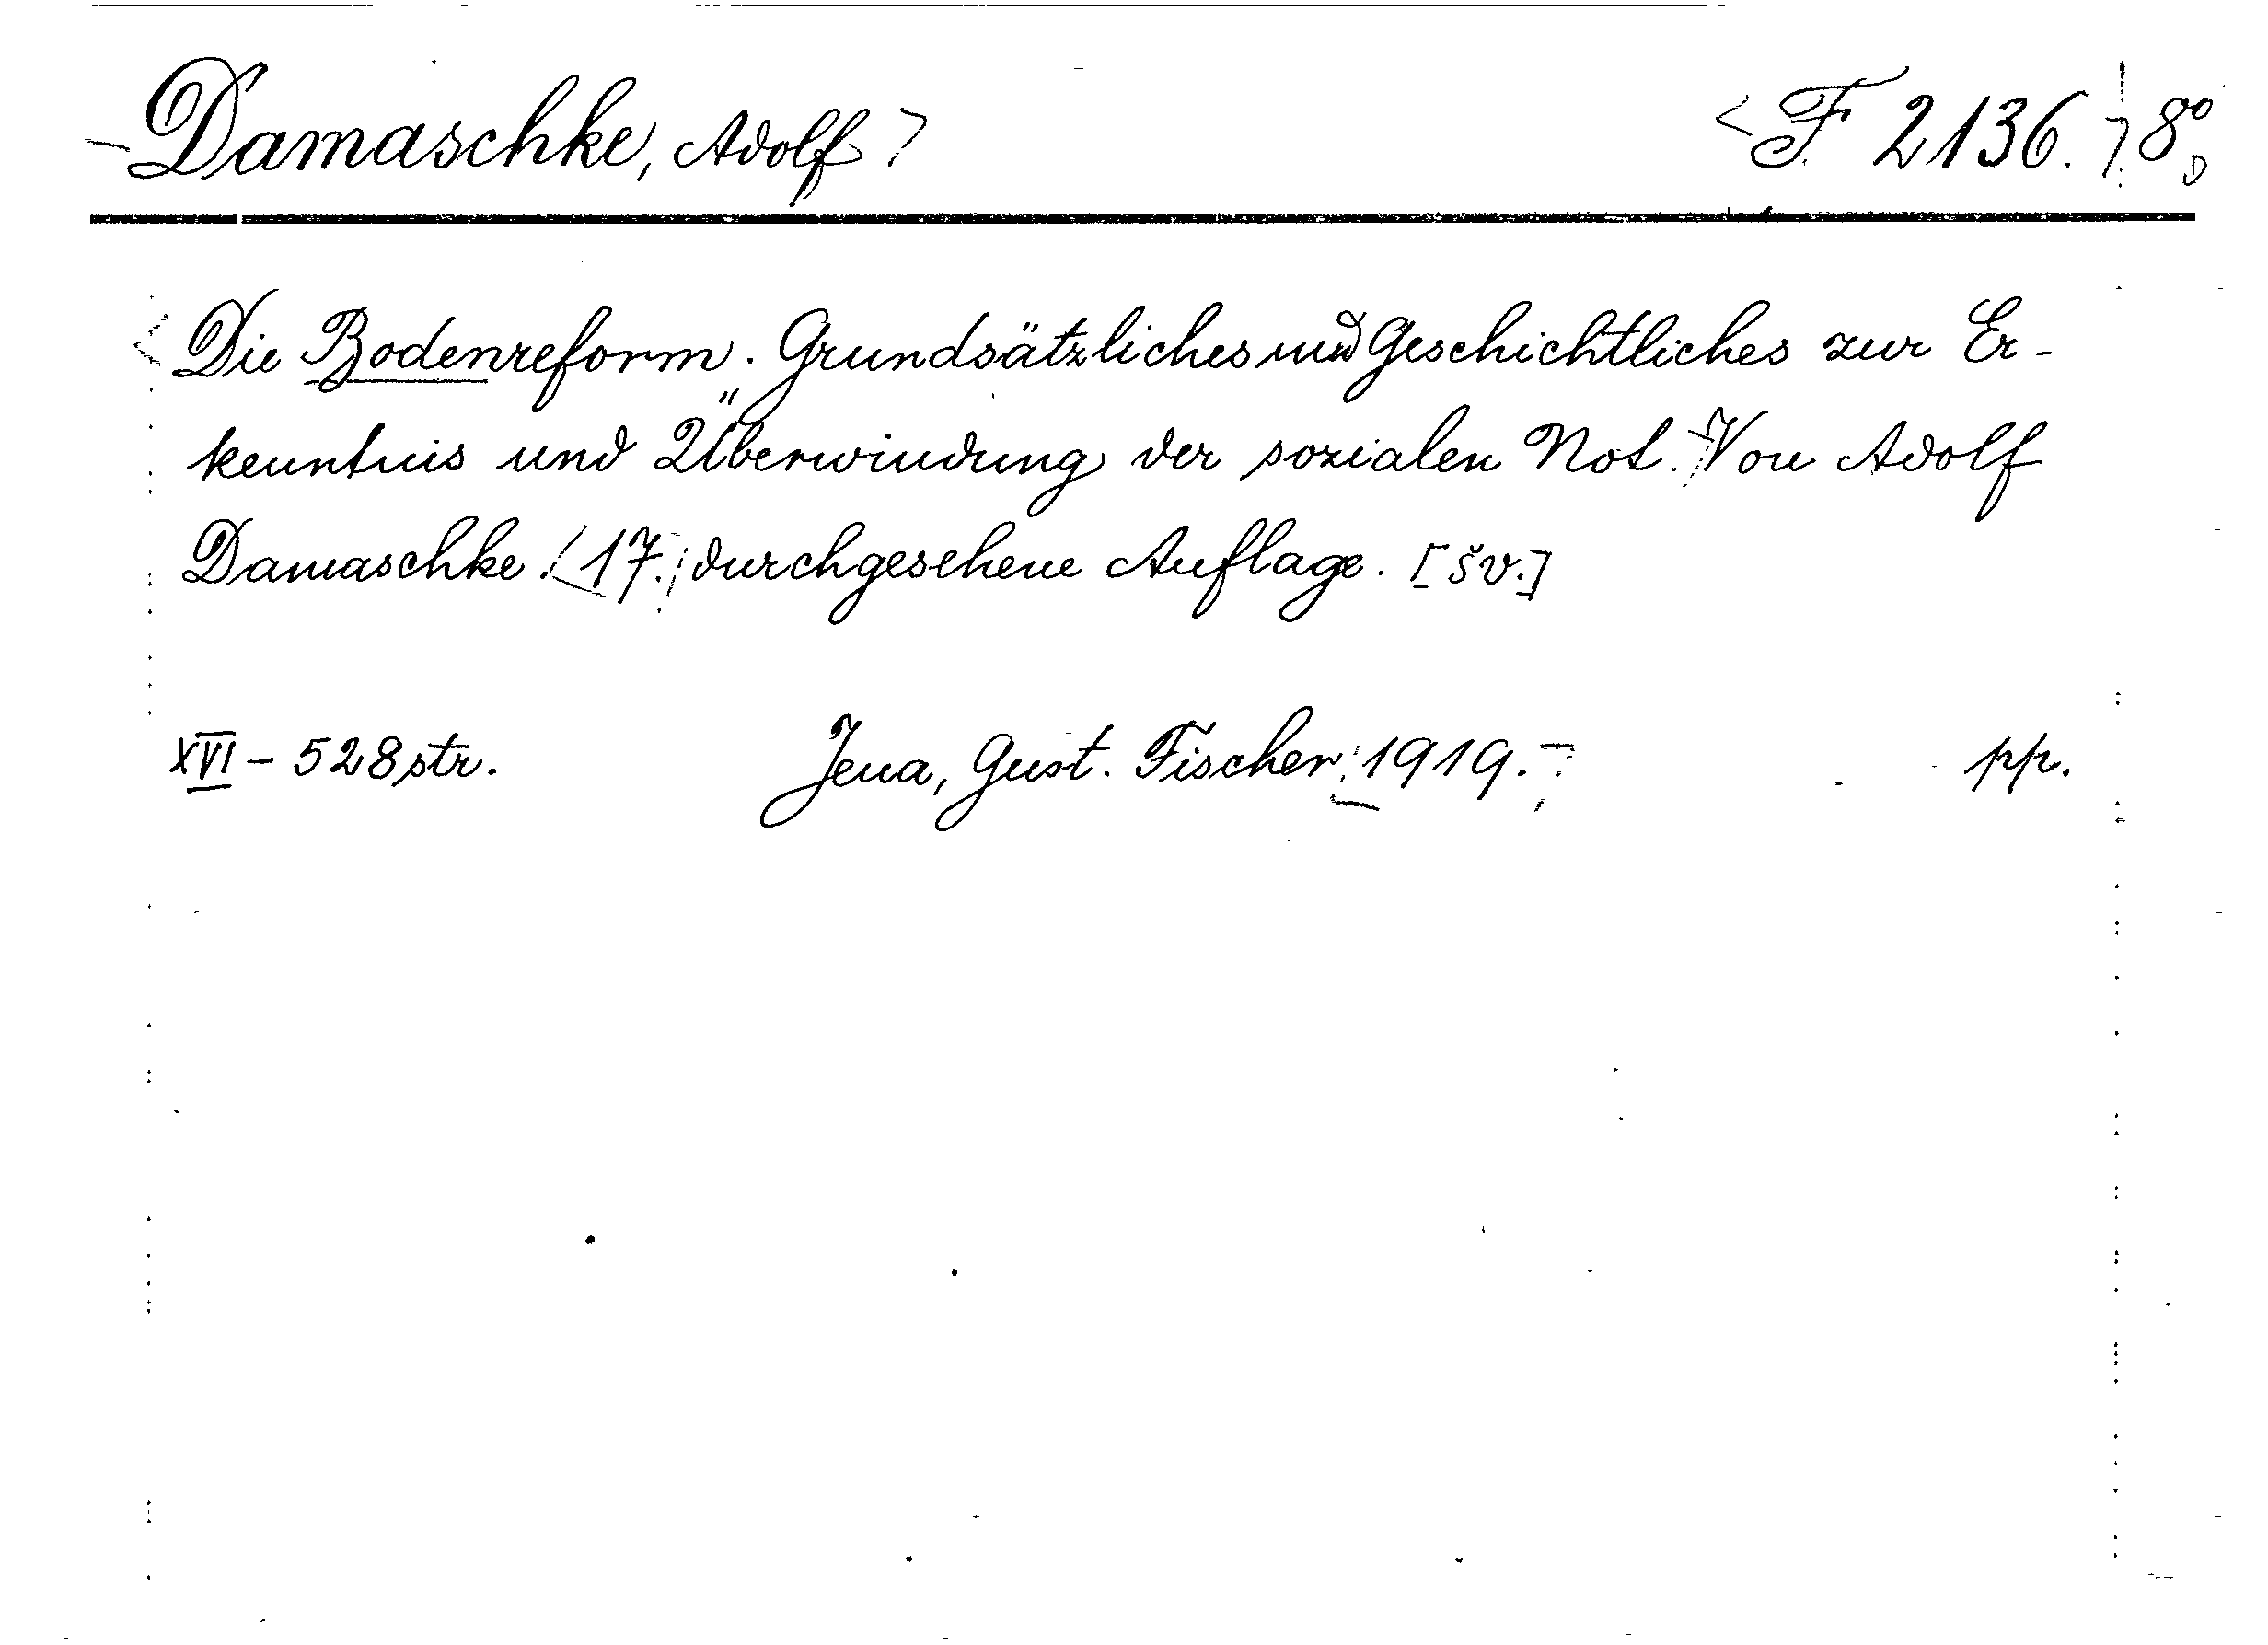 Damaschke, Adolf F 2136. 8°
Die Bodenreform. Grundsätzliches und Geschichtliches zur Er-
kenntnis und Überwindung der sozialen Not. Von Adolf
Damaschke. 17. durchgesehene Auflage. [šv.]
XVI - 528 str. Jena, Gust. Fischer, 1919. pp.